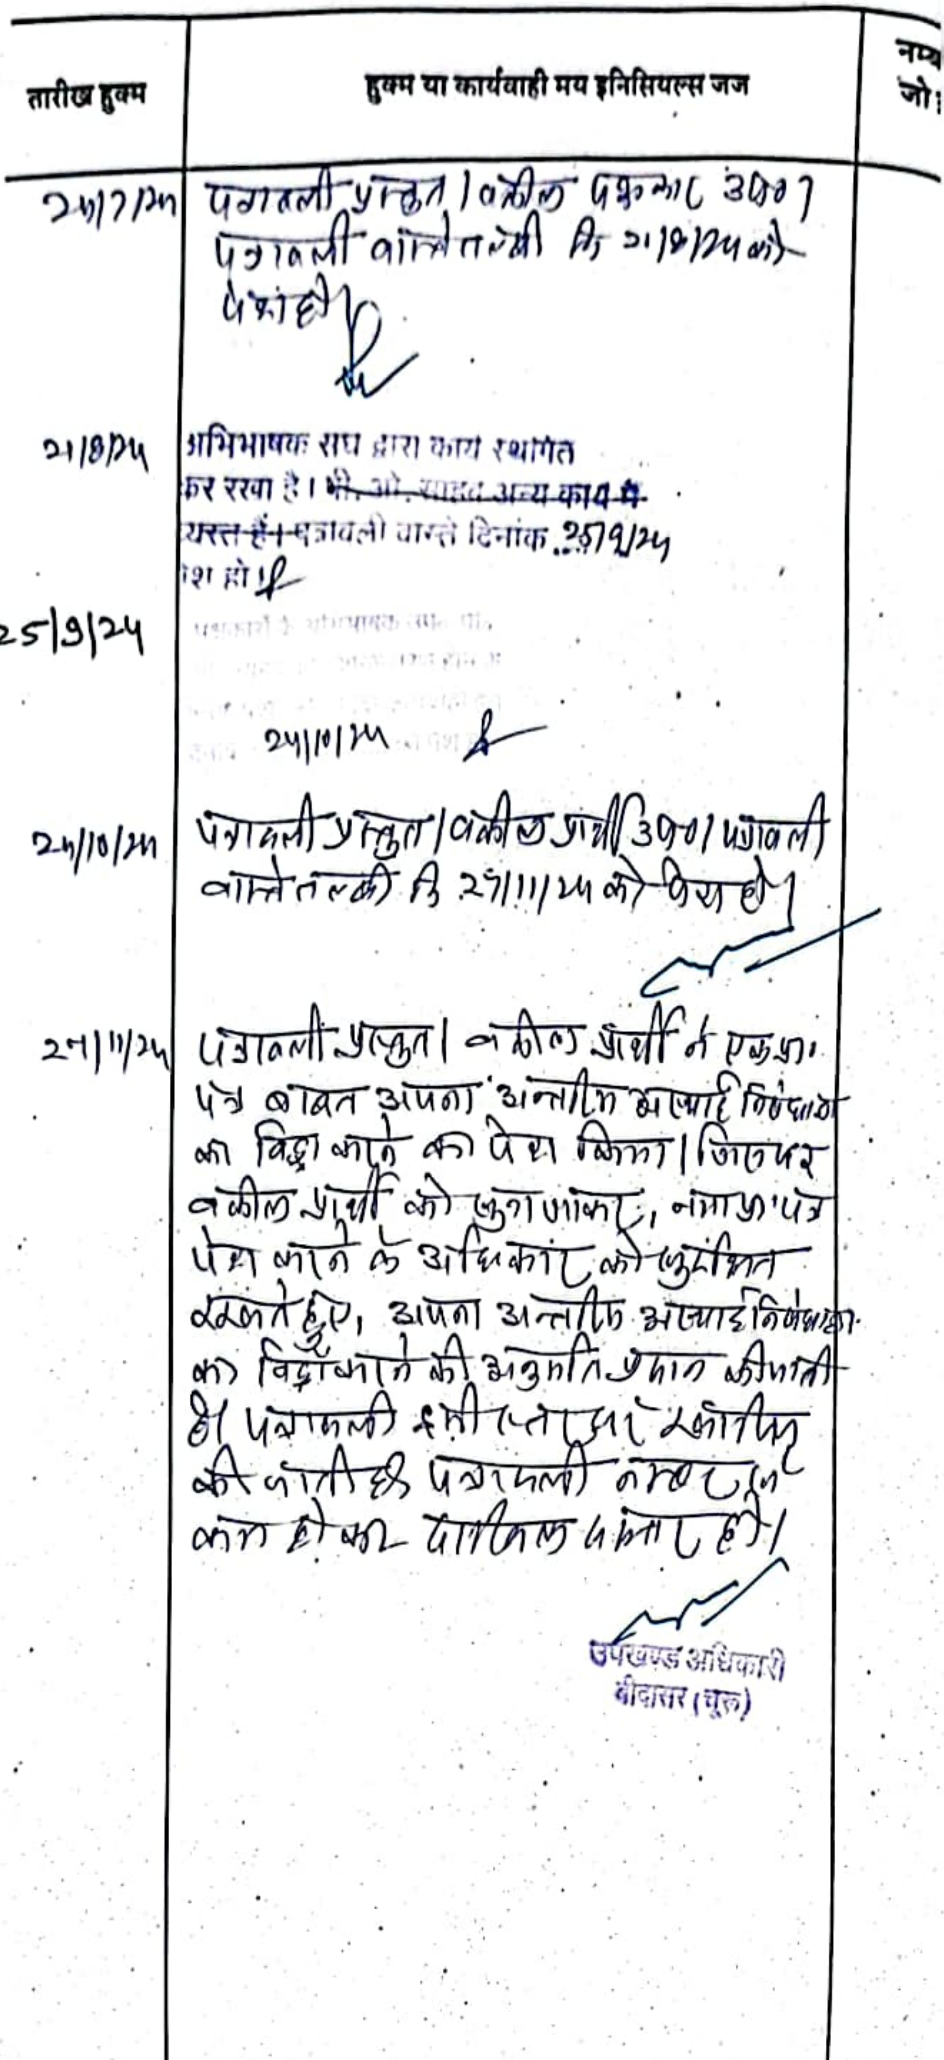 तारीख हुक्म
हुक्म या कार्यवाही मय इनिसियल्स जज
नम्ब
जो
24/7/24 पत्रावली प्रस्तुत। वकील पक्षकार उप०।
पत्रावली वास्ते तलबी दि 21/8/24 को
पेश हो।
21/8/24 अभिभाषक संघ द्वारा कार्य स्थगित
कर रखा है। पी. ओ. साहब अन्य कार्य में
व्यस्त हैं। पत्रावली वास्ते दिनांक 25/9/24
पेश हो।
25/9/24 पक्षकारों के अभिभाषक
24/10/24
24/10/24 पत्रावली प्रस्तुत। वकील प्रार्थी उप०। पत्रावली
वास्ते तलबी दि 27/11/24 को पेश हो।
27/11/24 पत्रावली प्रस्तुत। वकील प्रार्थी ने एक प्रा०
पत्र बाबत अपना अन्तरिम अस्थाई निषेधाज्ञा
का विड्रा करने का पेश किया। जिस पर
वकील प्रार्थी को सुना जाकर, नया प्रा० पत्र
पेश करने के अधिकार को सुरक्षित
रखते हुए, अपना अन्तरिम अस्थाई निषेधाज्ञा
का विड्रा करने की अनुमति प्रदान की जाती
है। पत्रावली इसी स्तर पर खारिज
की जाती है। पत्रावली नम्बर से
कम होकर दाखिल दफ्तर हो।
उपखण्ड अधिकारी
बीदासर (चूरू)